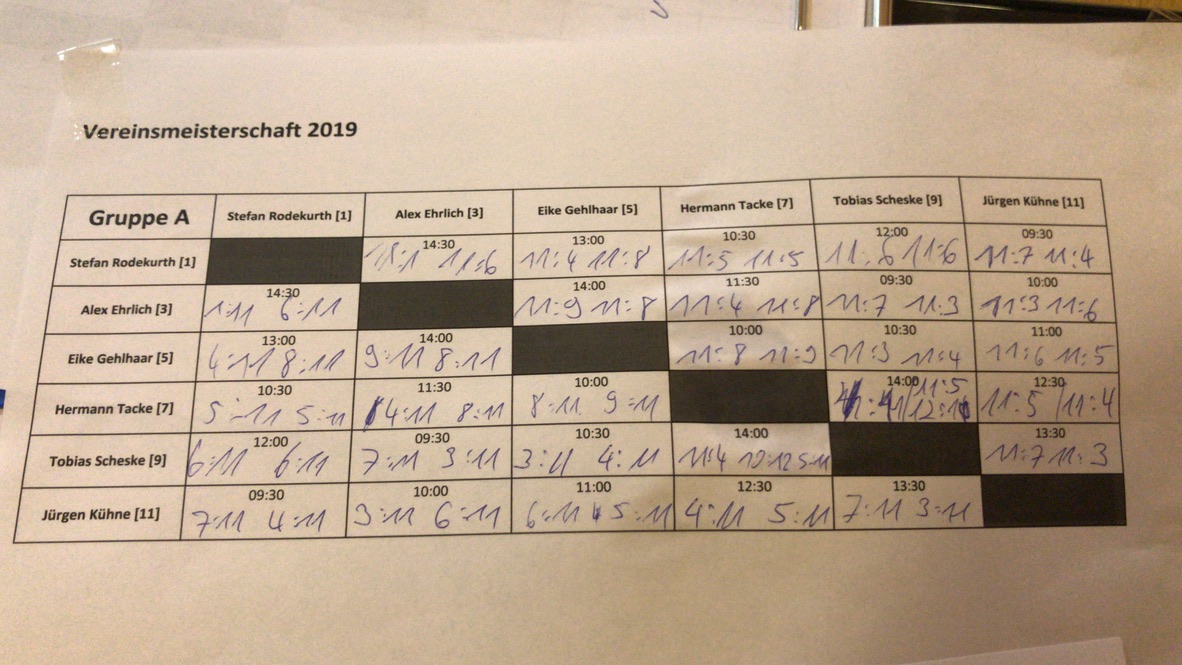 Vereinsmeisterschaft 2019
Gruppe A Stefan Rodekurth [1] Alex Ehrlich [3] Eike Gehlhaar [5] Hermann Tacke [7] Tobias Scheske [9] Jürgen Kühne [11]
14:30 13:00 10:30 12:00 09:30
Stefan Rodekurth [1] 11:1 11:6 11:4 11:8 11:5 11:5 11:6 11:6 11:7 11:4
14:30 14:00 11:30 09:30 10:00
Alex Ehrlich [3] 1:11 6:11 11:9 11:8 11:4 11:8 11:7 11:3 11:3 11:6
13:00 14:00 10:00 10:30 11:00
Eike Gehlhaar [5] 4:11 8:11 9:11 8:11 11:8 11:9 11:3 11:4 11:6 11:5
10:30 11:30 10:00 14:00 11:5 12:30
Hermann Tacke [7] 5:11 5:11 4:11 8:11 8:11 9:11 4:11/12:10 11:5 / 11:4
12:00 09:30 10:30 14:00 13:30
Tobias Scheske [9] 6:11 6:11 7:11 3:11 3:11 4:11 11:4 10:12 5:11 11:7 11:3
09:30 10:00 11:00 12:30 13:30
Jürgen Kühne [11] 7:11 4:11 3:11 6:11 6:11 5:11 4:11 5:11 7:11 3:11